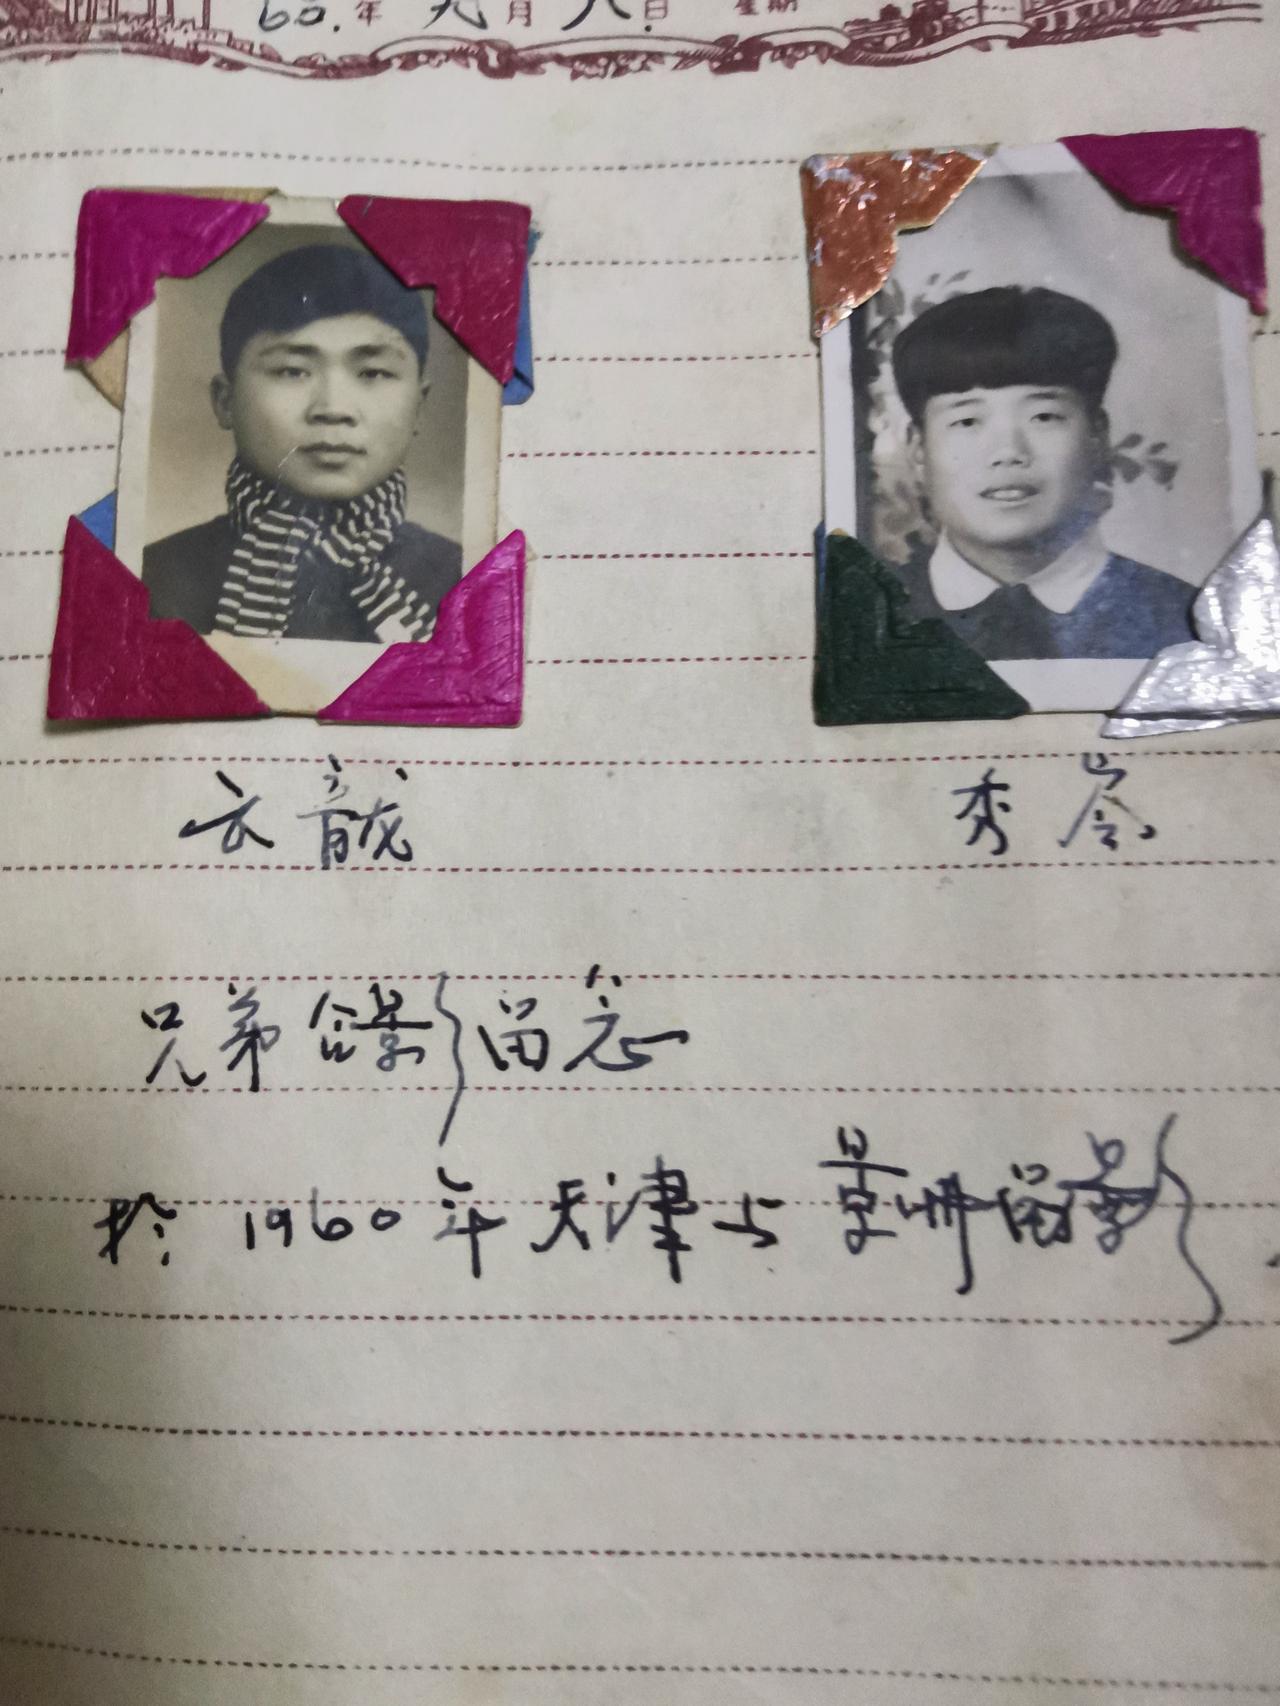 60.年 九月 八.日 星期
云龍 秀岺
兄弟合影}留念
於1960年天津与景州留影}